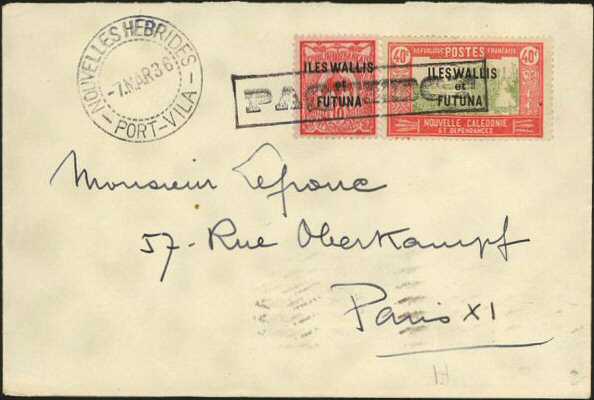 NOUVELLES HEBRIDES
-7.MAR 36
- PORT-VILA -
ILES WALLIS
et
FUTUNA
PAQUEBOT
40c REPUBLIQUE POSTES FRANÇAISE 40c
ILES WALLIS
et
FUTUNA
NOUVELLE CALEDONIE
ET DEPENDANCES
Monsieur Lefranc
57 - Rue Oberkampf
Paris XI